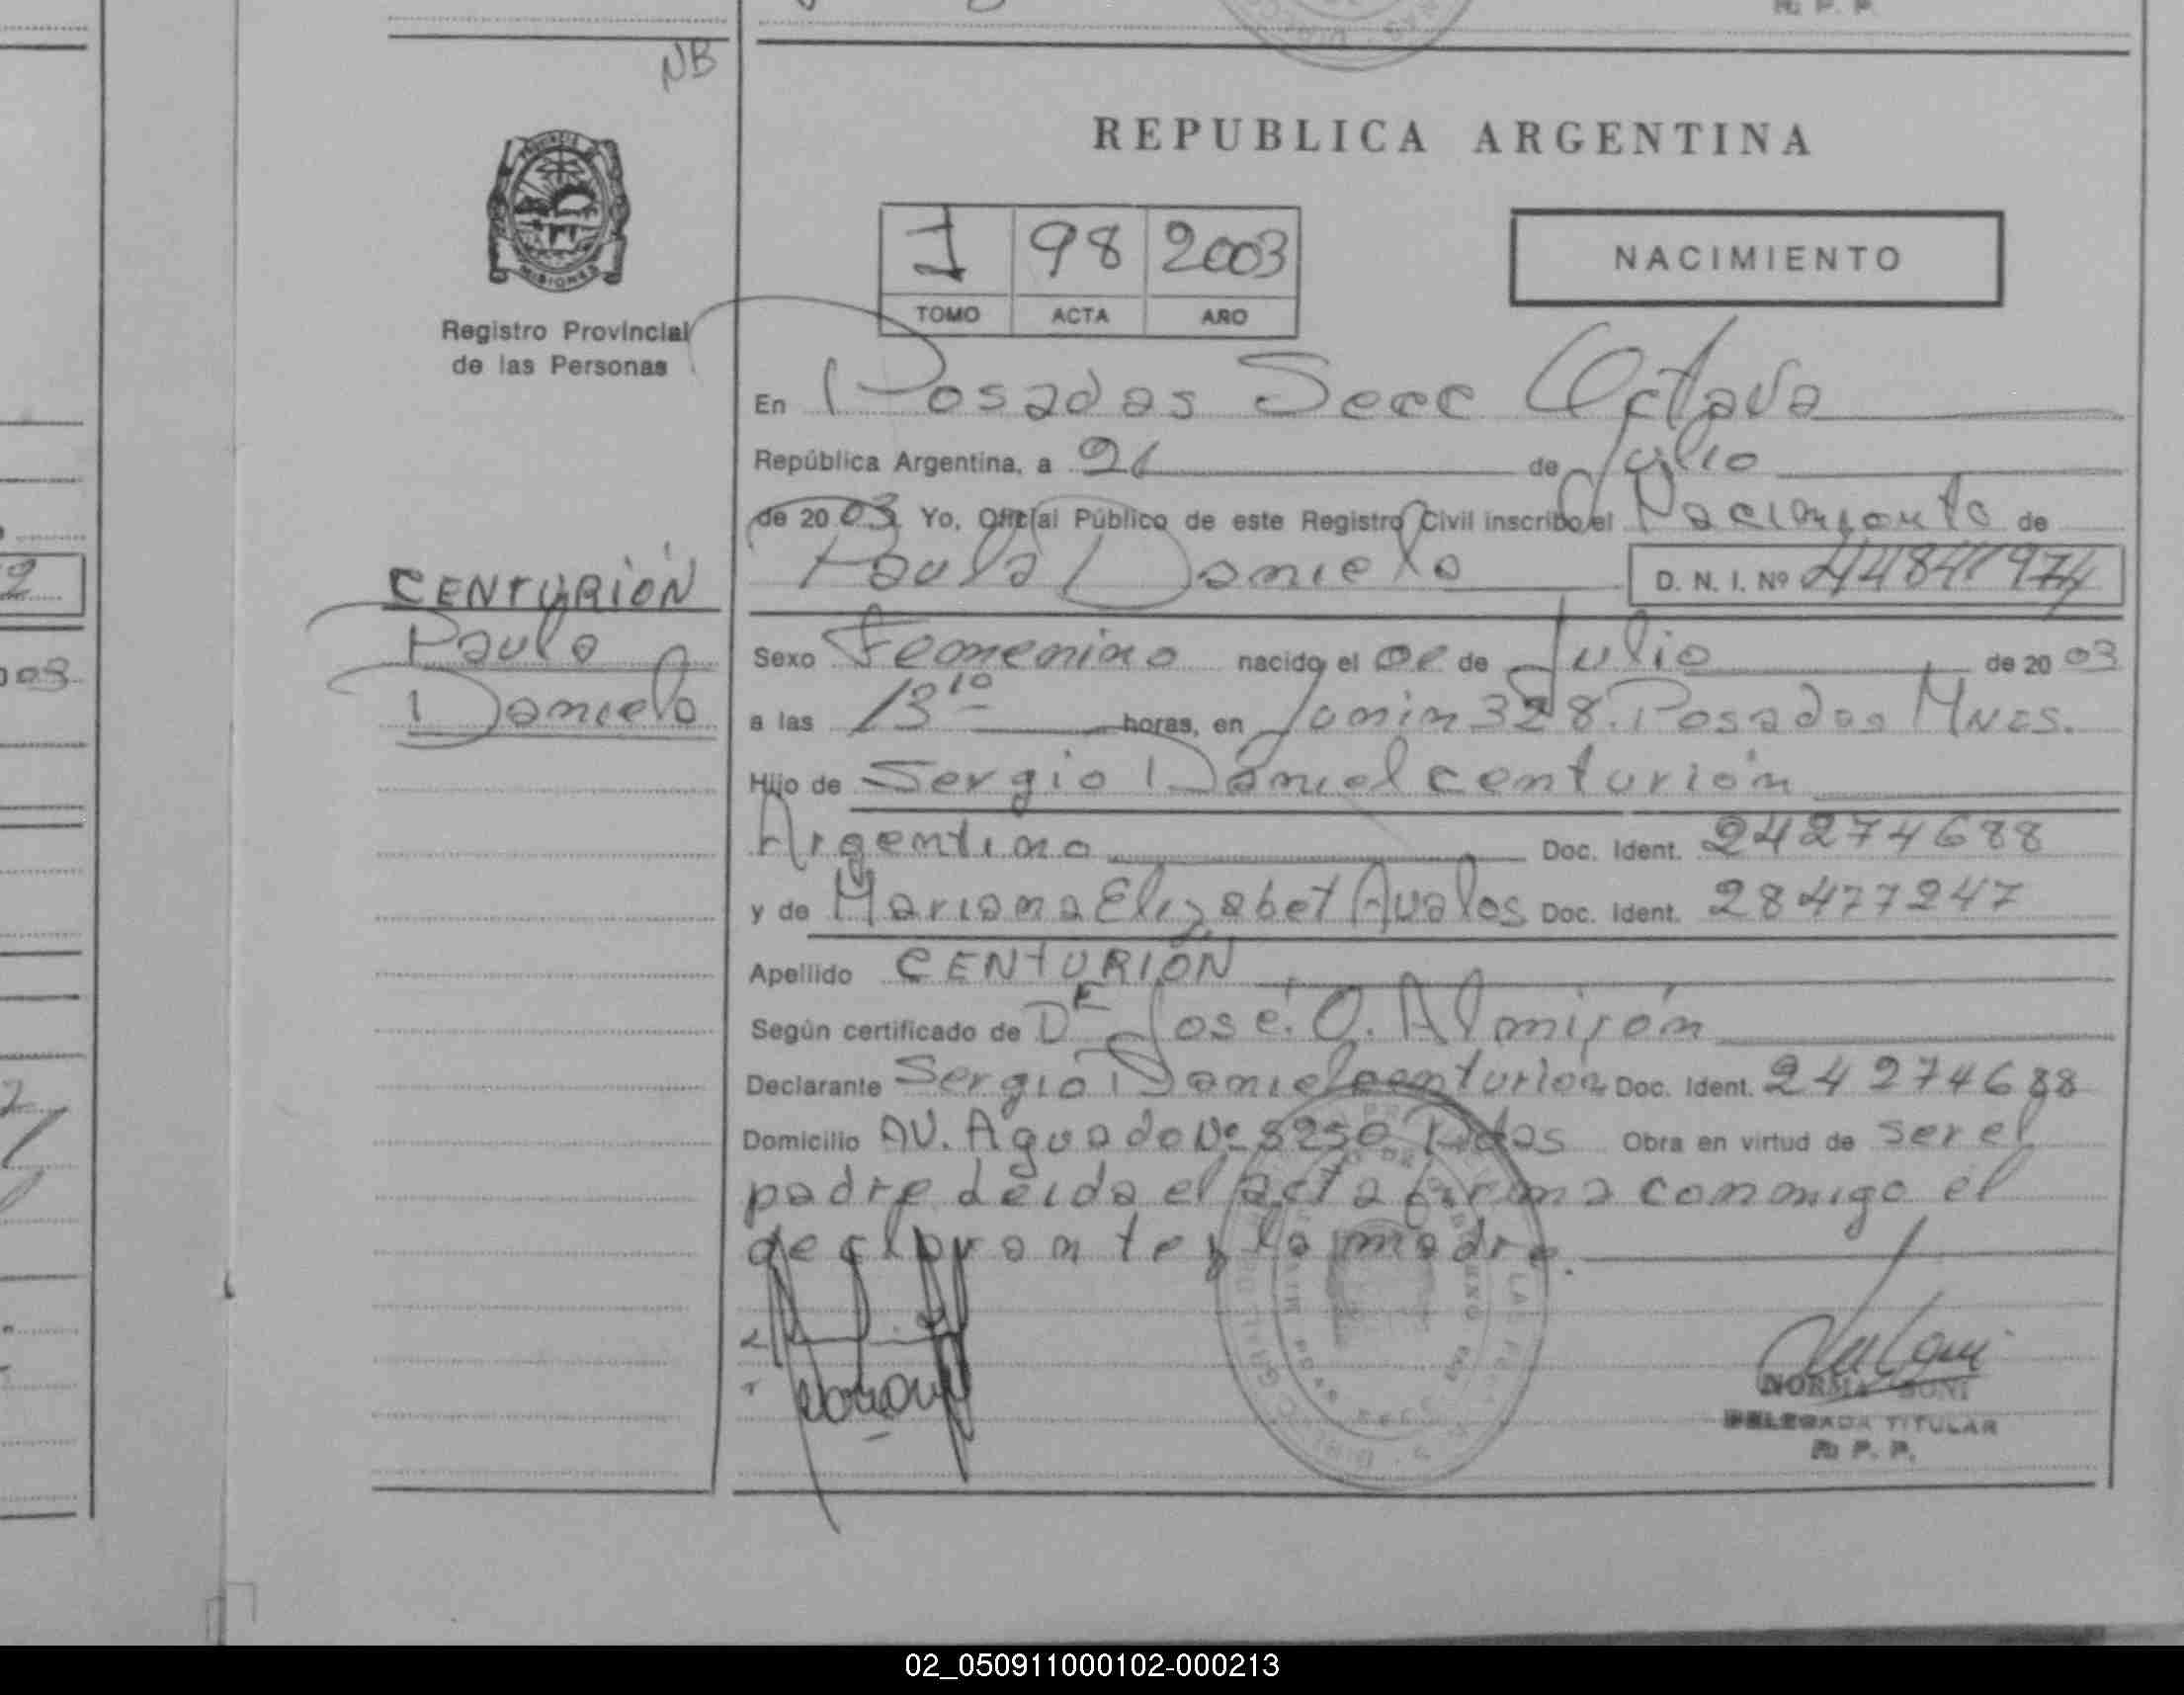 NB
REPUBLICA ARGENTINA
PROVINCIA DE
MISIONES
Registro Provincial
de las Personas
I 98 2003
TOMO ACTA AÑO
NACIMIENTO
En Posadas Secc Octava
República Argentina, a 21 de Julio
de 2003 Yo, Oficial Público de este Registro Civil inscribo el Nacimiento de
Paula Daniela D. N. I. Nº 44841974
CENTURIÓN
Paula
Daniela
Sexo Femenino nacido el 02 de Julio de 2003
a las 13 10 horas, en Junin 328. Posadas Mnes.
Hijo de Sergio Daniel centurión
Argentino Doc. Ident. 24274688
y de Mariana Elizabet Avalos Doc. Ident. 28477247
Apellido CENTURIÓN
Según certificado de Dr José. O. Almirón
Declarante Sergio Daniel centurión Doc. Ident. 24274688
Domicilio AV. Aguado Nº 5250 Pdas Obra en virtud de ser el
padre leida el acta firma conmigo el
declarante y la madre.
NORMA BONI
DELEGADA TITULAR
R. P. P.
02_050911000102-000213